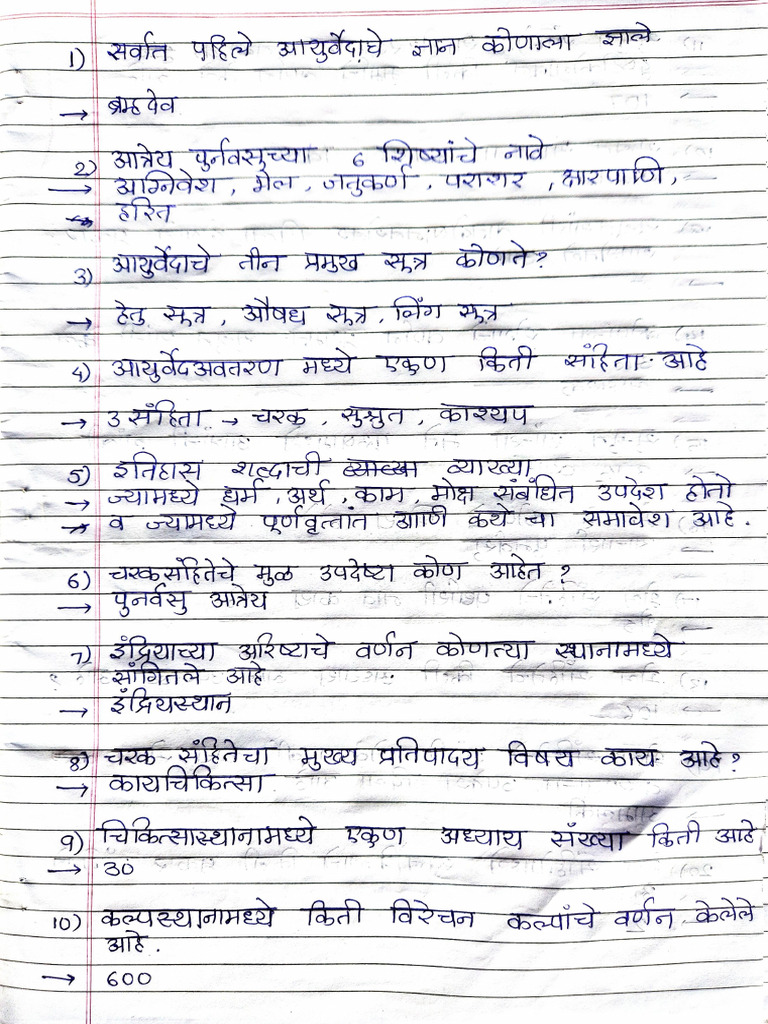 1) सर्वात पहिले आयुर्वेदाचे ज्ञान कोणाला झाले
→ ब्रम्हदेव
2) आत्रेय पुर्नवसुच्या 6 शिष्यांचे नावे
→ अग्निवेश, भेल, जतुकर्ण, पराशर, क्षारपाणि,
→ हरित
3) आयुर्वेदाचे तीन प्रमुख सूत्र कोणते?
→ हेतु सूत्र, औषध सूत्र, लिंग सूत्र
4) आयुर्वेदअवतरण मध्ये एकुण किती संहिता आहे
→ 3 संहिता → चरक, सुश्रुत, काश्यप
5) इतिहास शब्दाची व्याख्या
→ ज्यामध्ये धर्म, अर्थ, काम, मोक्ष संबंधित उपदेश होतो
→ व ज्यामध्ये पूर्णवृत्तांत आणि कथेचा समावेश आहे.
6) चरकसंहितेचे मुळ उपदेष्टा कोण आहेत?
→ पुनर्वसु आत्रेय
7) इंद्रियाच्या अरिष्टाचे वर्णन कोणत्या स्थानामध्ये
सांगितले आहे
→ इंद्रियस्थान
8) चरक संहितेचा मुख्य प्रतिपादय विषय काय आहे?
→ कायचिकित्सा
9) चिकित्सास्थानामध्ये एकुण अध्याय संख्या किती आहे
→ 30
10) कल्पस्थानामध्ये किती विरेचन कल्पांचे वर्णन केलेले
आहे.
→ 600